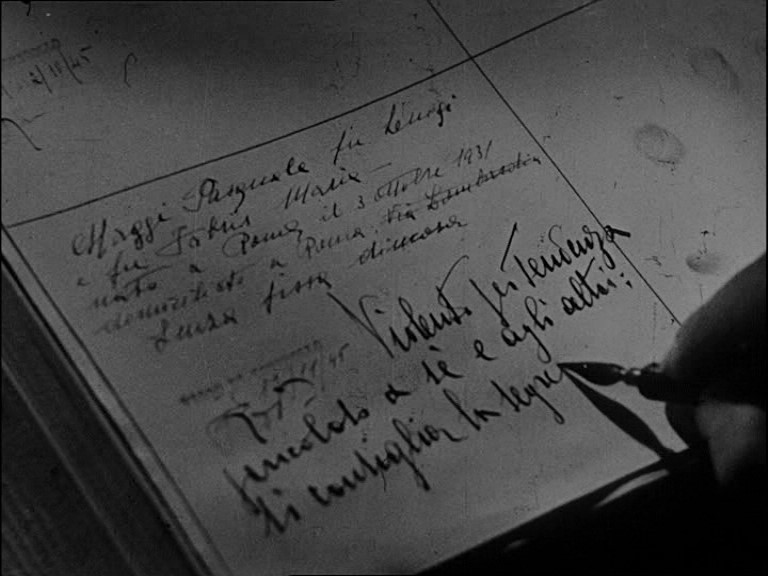 2/11/45
Maggi Pasquale fu Luigi
e fu Fabris Maria
nato a Roma il 3 ottobre 1931
domiciliato a Roma Via Lombardia
Senza fissa dimora
Violento per tendenza
12/11/45
pericoloso a sè e agli altri:
si consiglia la segre